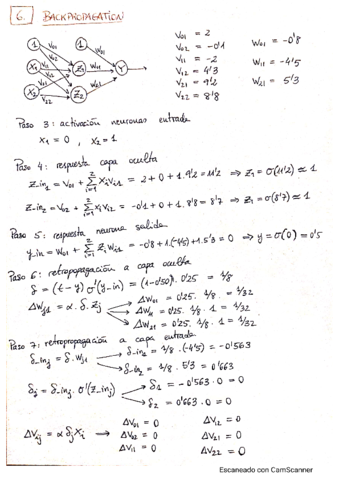 6. BACKPROPAGATION
1 V01 1 W01
X1 V11 Z1 W11 Y
V02 V12 V21 Z2 W21
X2 V22
V01 = 2
V02 = -0'1
V11 = -2
V12 = 4'3
V21 = 9'2
V22 = 8'8
W01 = -0'8
W11 = -4'5
W21 = 5'3
Paso 3: activación neuronas entrada
X1 = 0 , X2 = 1
Paso 4: respuesta capa oculta
Z_in1 = V01 + Σ Xi Vi1 = 2 + 0 + 1·9'2 = 11'2 ⇒ Z1 = σ(11'2) ≃ 1
Z_in2 = V02 + Σ Xi Vi2 = -0'1 + 0 + 1·8'8 = 8'7 ⇒ Z1 = σ(8'7) ≃ 1
Paso 5: respuesta neurona salida
y_in = W01 + Σ Zi Wi1 = -0'8 + 1·(-4'5) + 1·5'3 = 0 ⇒ y = σ(0) = 0'5
Paso 6: retropropagación a capa oculta
δ = (t - y) σ'(y-in) = (1-0'50)·0'25 = 1/8
ΔWj1 = α·δ·Zj
ΔW01 = 0'25·1/8 = 1/32
ΔW11 = 0'25·1/8·1 = 1/32
ΔW21 = 0'25·1/8·1 = 1/32
Paso 7: retropropagación a capa entrada
δ_inj = δ·Wj1
δ-in1 = 1/8·(-4'5) = -0'563
δ-in2 = 1/8·5'3 = 0'663
δj = δ-inj·σ'(Z-inj)
δ1 = -0'563·0 = 0
δ2 = 0'663·0 = 0
ΔVij = α δj Xi
ΔV01 = 0
ΔV02 = 0
ΔV11 = 0
ΔV12 = 0
ΔV21 = 0
ΔV22 = 0
Escaneado con CamScanner